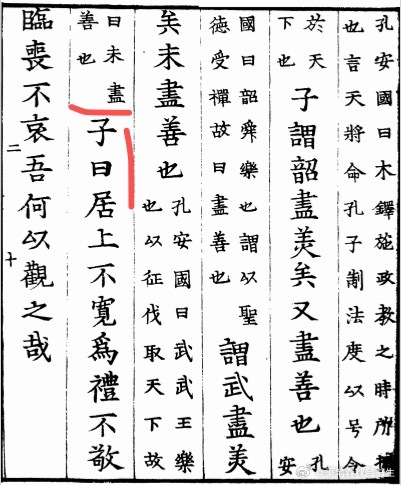 孔安國曰木鐸施政教之時所
也言天將命孔子制法度以号令
於天
下也
子謂韶盡羙矣又盡善也
孔
安
國曰韶舜樂也謂以聖
德受禪故曰盡善也
謂武盡羙
矣未盡善也
孔安國曰武武王樂
也以征伐取天下故
曰未盡
善也
子曰居上不寬爲禮不敬
臨喪不哀吾何以觀之哉
二十